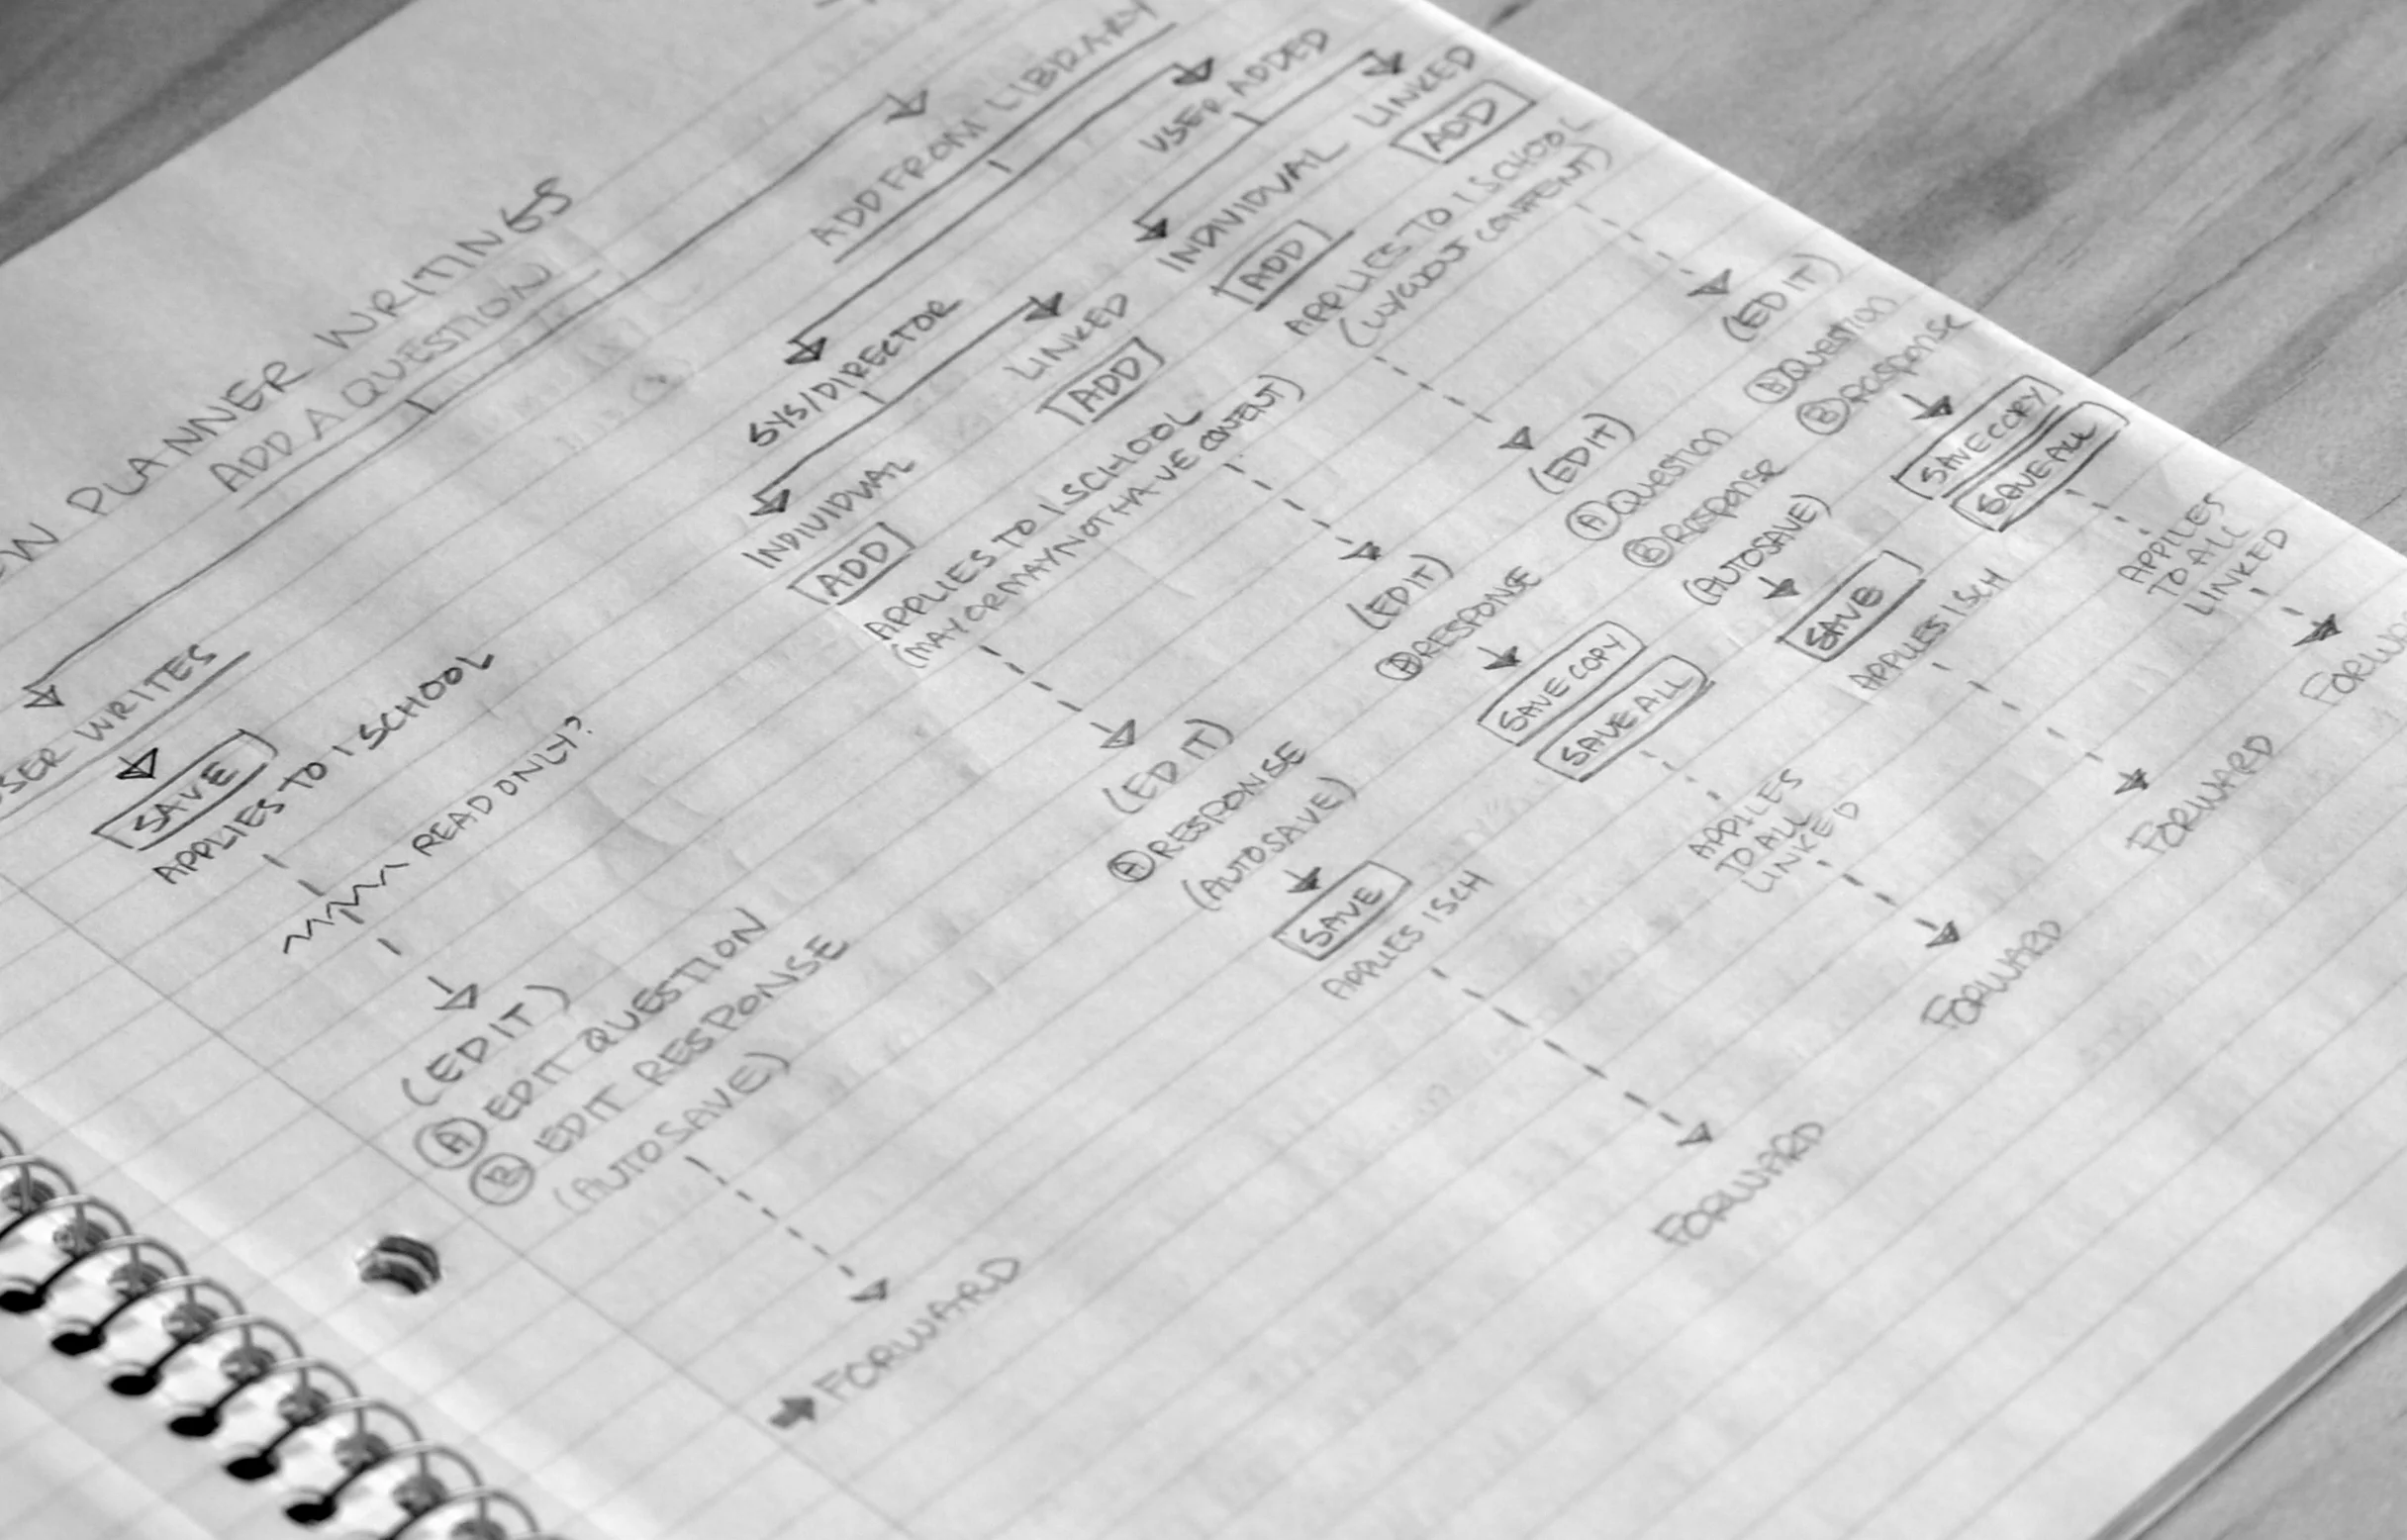 PLANNER WRITINGS
ADD A QUESTION
WRITES
SAVE
APPLIES TO 1 SCHOOL
READ ONLY?
(EDIT)
A EDIT QUESTION
B EDIT RESPONSE
(AUTOSAVE)
FORWARD
ADD FROM LIBRARY
SYS/DIRECTOR
INDIVIDUAL
ADD
LINKED
ADD
APPLIES TO 1 SCHOOL
(MAY OR MAY NOT HAVE CONTENT)
(EDIT)
A RESPONSE
(AUTOSAVE)
SAVE
APPLIES 1 SCH
FORWARD
(EDIT)
A RESPONSE
SAVE COPY
SAVE ALL
APPILES
TO ALL
LINKED
FORWARD
USER ADDED
INDIVIDUAL
ADD
LINKED
ADD
APPLIES TO 1 SCHOOL
(EDIT)
A QUESTION
B RESPONSE
(AUTOSAVE)
SAVE
APPLIES 1 SCH
FORWARD
(EDIT)
A QUESTION
B RESPONSE
SAVE COPY
SAVE ALL
APPILES
TO ALL
LINKED